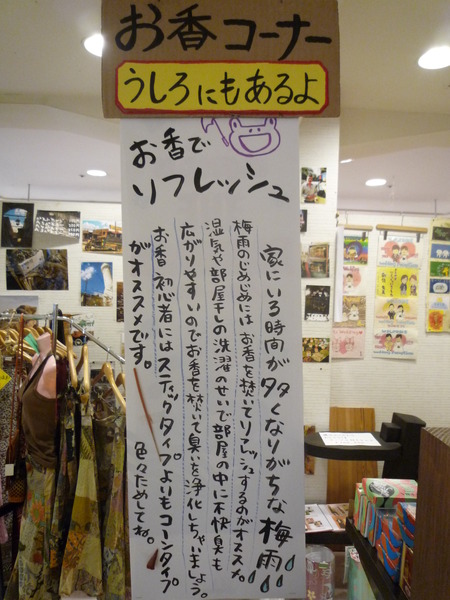 お香コーナー
うしろにもあるよ
お香で
リフレッシュ
家にいる時間が多くなりがちな梅雨
梅雨のじめじめには お香を焚いてリフレッシュするのがオススメ。
湿気や部屋干しの洗濯のせいで部屋の中に不快臭も
広がりやすいのでお香を焚いて臭いを浄化しちゃいましょう。
お香初心者にはスティックタイプよりもコーンタイプ
がオススメです。
色々ためしてね。